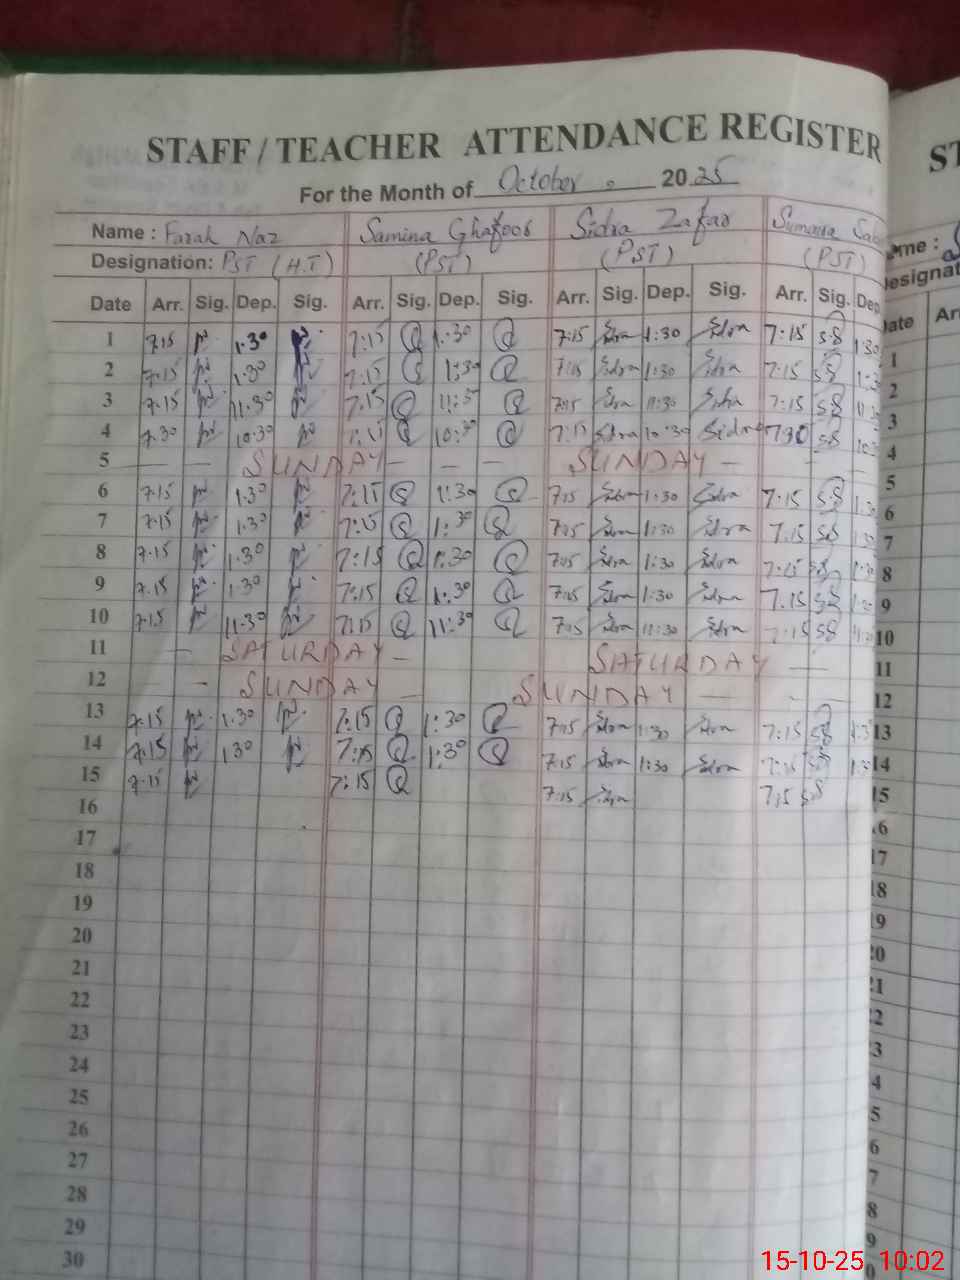 STAFF / TEACHER ATTENDANCE REGISTER
For the Month of October 2025
Name : Farah Naz Samina Ghafoor Sidra Zafar Sumaira
Designation: PST (H.T) (PST) (PST) (PST)
Date Arr. Sig. Dep. Sig. Arr. Sig. Dep. Sig. Arr. Sig. Dep. Sig. Arr. Sig. Dep
1 7.15 1.30 7:15 1.30 7:15 Sidra 1:30 Sidra 7:15 SS 1:30
2 7.15 1.30 7:15 1:30 7:15 Sidra 1:30 Sidra 7:15 SS 1:30
3 7.15 11.30 7.15 11:30 7:15 Sidra 11:30 Sidra 7:15 SS 11:30
4 7.30 10.30 10:30 7:15 Sidra 10:30 Sidra 7:30 SS 10:30
5 — — SUNDAY — — — SUNDAY —
6 7.15 1.30 7:15 1:30 7:15 Sidra 1:30 Sidra 7:15 SS 1:30
7 7.15 1.30 7:15 1:30 7:15 Sidra 1:30 Sidra 7.15 SS 1:30
8 7.15 1.30 7:15 1:30 7:15 Sidra 1:30 Sidra 7:15 SS 1:30
9 7.15 1.30 7:15 1:30 7:15 Sidra 1:30 Sidra 7.15 SS 1:30
10 7.15 11.30 7:15 11:30 7:15 Sidra 11:30 Sidra 7:15 SS 11:30
11 — SATURDAY — SATURDAY —
12 - SUNDAY — SUNDAY —
13 7.15 1.30 7:15 1:30 7:15 Sidra 1:30 Sidra 7:15 SS 1:30
14 7.15 1 30 7:15 1:30 7:15 Sidra 1:30 Sidra 7:15 SS 1:30
15 7.15 7:15 7:15 Sidra 7:15 SS
16
17
18
19
20
21
22
23
24
25
26
27
28
29
30
15-10-25 10:02